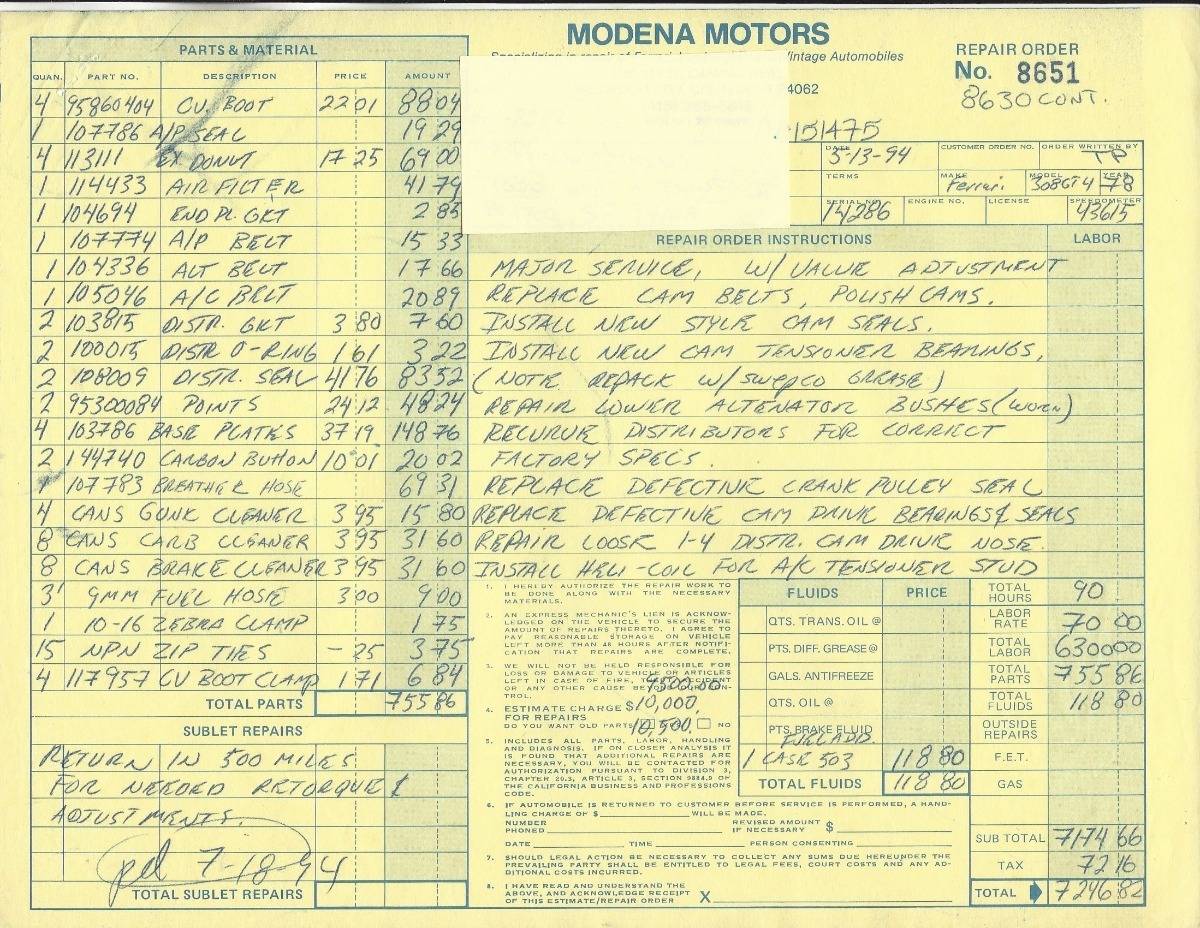 MODENA MOTORS
Vintage Automobiles
4062
REPAIR ORDER
No. 8651
8630 CONT.
151475
DATE 5-13-94
CUSTOMER ORDER NO.
ORDER WRITTEN BY TP
TERMS
MAKE Ferrari
MODEL 308GT4
YEAR 78
SERIAL NO. 14286
ENGINE NO.
LICENSE
SPEEDOMETER 43615
PARTS & MATERIAL
QUAN. PART NO. DESCRIPTION PRICE AMOUNT
4 95860404 CV. BOOT 22 01 88 04
1 107786 A/P SEAL 19 29
4 113111 EX DONUT 17 25 69 00
1 114433 AIR FILTER 41 79
1 104694 END PL. GKT 2 85
1 107774 A/P BELT 15 33
1 104336 ALT BELT 17 66
1 105046 A/C BELT 20 89
2 103815 DISTR. GKT 3 80 7 60
2 100015 DISTR O-RING 1 61 3 22
2 108009 DISTR. SEAL 41 76 83 52
2 95300084 POINTS 24 12 48 24
4 103786 BASE PLATES 37 19 148 76
2 144740 CARBON BUTTON 10 01 20 02
1 107783 BREATHER HOSE 69 31
4 CANS GUNK CLEANER 3 95 15 80
8 CANS CARB CLEANER 3 95 31 60
8 CANS BRAKE CLEANER 3 95 31 60
3' 9MM FUEL HOSE 3 00 9 00
1 10-16 ZEBRA CLAMP 1 75
15 NPN ZIP TIES - 25 3 75
4 117957 CV BOOT CLAMP 1 71 6 84
TOTAL PARTS 755 86
SUBLET REPAIRS
RETURN IN 500 MILES
FOR NEEDED RETORQUE &
ADJUSTMENTS.
pd 7-18-94
TOTAL SUBLET REPAIRS
REPAIR ORDER INSTRUCTIONS LABOR
MAJOR SERVICE, W/ VALVE ADJUSTMENT
REPLACE CAM BELTS, POLISH CAMS.
INSTALL NEW STYLE CAM SEALS.
INSTALL NEW CAM TENSIONER BEARINGS,
(NOTE REPACK W/ SWEPCO GREASE)
REPAIR LOWER ALTENATOR BUSHES (WORN)
RECURVE DISTRIBUTORS FOR CORRECT
FACTORY SPECS.
REPLACE DEFECTIVE CRANK PULLEY SEAL
REPLACE DEFECTIVE CAM DRIVE BEARINGS & SEALS
REPAIR LOOSE 1-4 DISTR. CAM DRIVE NOSE.
INSTALL HELI-COIL FOR A/C TENSIONER STUD
1. I HEREBY AUTHORIZE THE REPAIR WORK TO
BE DONE ALONG WITH THE NECESSARY
MATERIALS.
2. AN EXPRESS MECHANIC'S LIEN IS ACKNOW-
LEDGED ON THE VEHICLE TO SECURE THE
AMOUNT OF REPAIRS THERETO. I AGREE TO
PAY REASONABLE STORAGE ON VEHICLE
LEFT MORE THAN 48 HOURS AFTER NOTIFI-
CATION THAT REPAIRS ARE COMPLETE.
3. WE WILL NOT BE HELD RESPONSIBLE FOR
LOSS OR DAMAGE TO VEHICLE OR ARTICLES
LEFT IN CASE OF FIRE, THEFT, ACCIDENT
OR ANY OTHER CAUSE BEYOND OUR CON-
TROL.
4. ESTIMATE CHARGE $ 10,000.
FOR REPAIRS
DO YOU WANT OLD PARTS NO
10,500.
5. INCLUDES ALL PARTS, LABOR, HANDLING
AND DIAGNOSIS. IF ON CLOSER ANALYSIS IT
IS FOUND THAT ADDITIONAL REPAIRS ARE
NECESSARY, YOU WILL BE CONTACTED FOR
AUTHORIZATION PURSUANT TO DIVISION 3,
CHAPTER 20.3, ARTICLE 3, SECTION 9884.9
OF THE CALIFORNIA BUSINESS AND PROFESSIONS
CODE.
FLUIDS PRICE
QTS. TRANS. OIL @
PTS. DIFF. GREASE @
GALS. ANTIFREEZE
QTS. OIL @
PTS. BRAKE FLUID
FUEL ADD.
1 CASE 503 118 80
TOTAL FLUIDS 118 80
6. IF AUTOMOBILE IS RETURNED TO CUSTOMER BEFORE SERVICE IS PERFORMED, A HAND-
LING CHARGE OF $ WILL BE MADE.
NUMBER PHONED REVISED AMOUNT IF NECESSARY $
DATE TIME PERSON CONSENTING
7. SHOULD LEGAL ACTION BE NECESSARY TO COLLECT ANY SUMS DUE HEREUNDER THE
PREVAILING PARTY SHALL BE ENTITLED TO LEGAL FEES, COURT COSTS AND ANY AD-
DITIONAL COSTS INCURRED.
8. I HAVE READ AND UNDERSTAND THE
ABOVE, AND ACKNOWLEDGE RECEIPT
OF THIS ESTIMATE/REPAIR ORDER X
TOTAL HOURS 90
LABOR RATE 70 00
TOTAL LABOR 6300 00
TOTAL PARTS 755 86
TOTAL FLUIDS 118 80
OUTSIDE REPAIRS
F.E.T.
GAS
SUB TOTAL 7174 66
TAX 72 16
TOTAL 7246 82